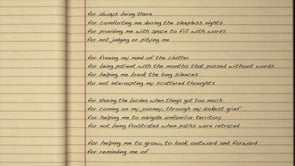 for always being there
for comforting me during the sleepless nights
for providing me with space to fill with words
for not judging or pitying me
for freeing my mind of the clutter
for being patient with the months that passed without words
for helping me break the long silences
for not interrupting my scattered thoughts
for sharing the burden when things got too much
for coming on my journey, through my darkest grief
for helping me to navigate unfamiliar territory
for not being frustrated when paths were retraced
for helping me to grow, to look outward and forward
for reminding me of